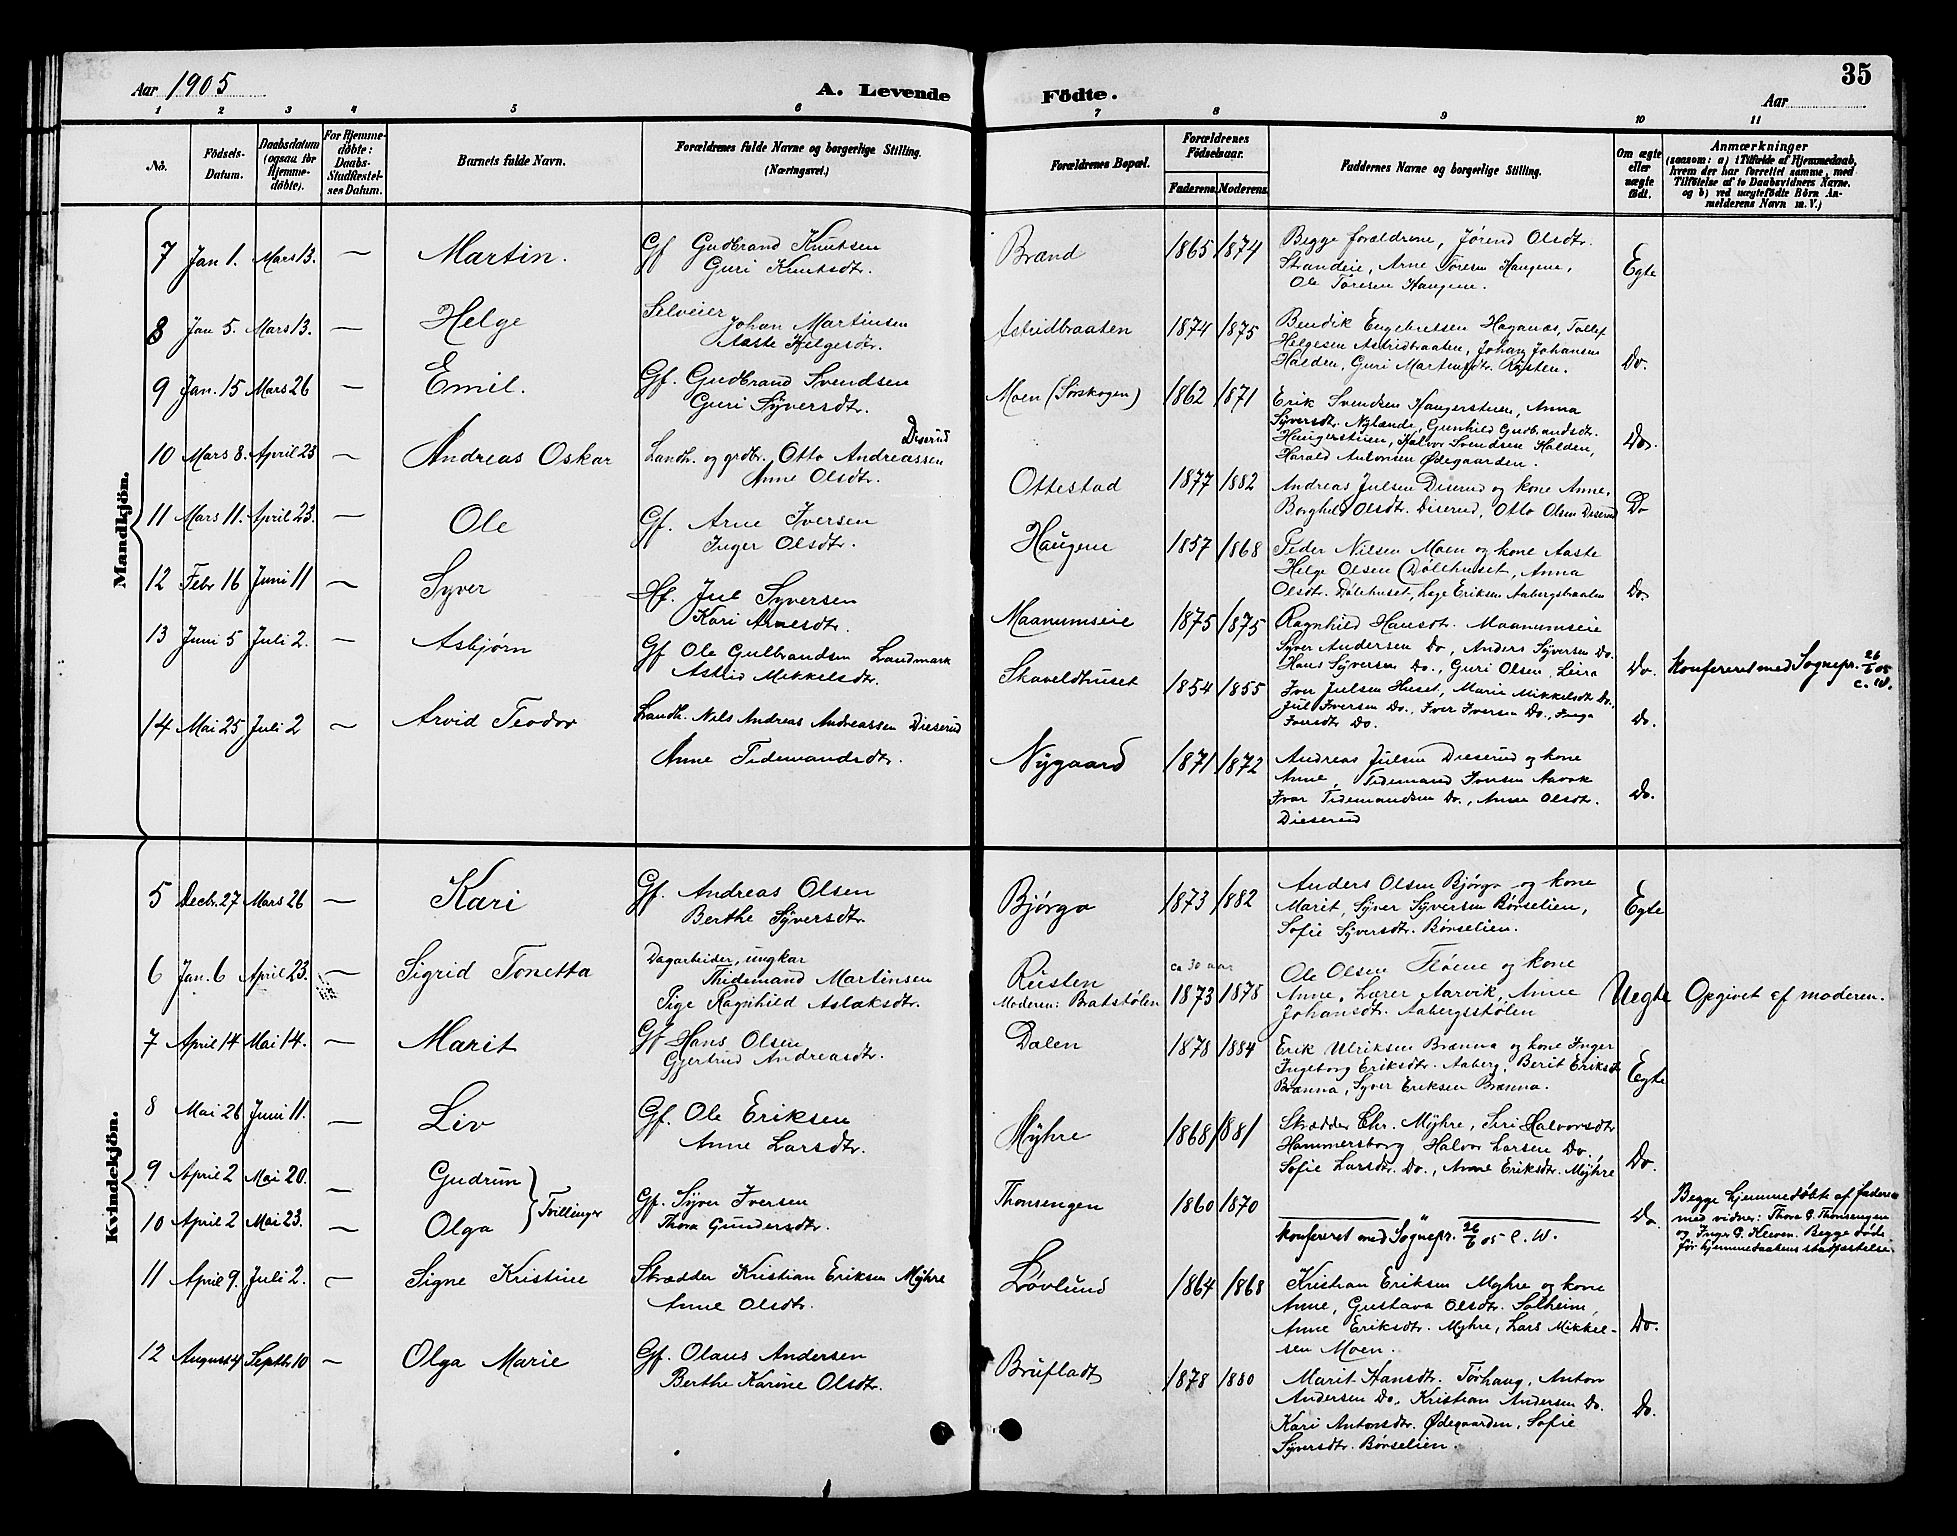 Aar 1905
A. Levende Födte.
35
Aar
1 2 3 4 5 6 7 8 9 10 11
No.
Födsels-Datum.
Daabsdatum (ogsaa for Hjemme-døbte).
For Hjemme-døbte: Daabs-Stadfæstel-ses Datum.
Barnets fulde Navn.
Forældrenes fulde Navne og borgerlige Stilling. (Næringsvei.)
Forældrenes Bopæl.
Forældrenes Födselsaar.
Faderens. Moderens.
Faddernes Navne og borgerlige Stilling.
Om ægte eller uægte födt.
Anmærkninger
(saasom: a) i Tilfælde af Hjemmedaab,
hvem der har forrettet samme, med
Tilföielse af to Daabsvidners Navne.
og b) ved uægtefödte Börn An-
melderens Navn m. V.)
Mandkjön.
7 Jan 1. Mars 13. — Martin. Gf Gudbrand Knutsen
Guri Knutsdtr.
Brænd 1865 1874 Begge forældrene, Jørend Olsdtr.
Strandeie, Arne Toresen Haugene,
Ole Toresen Haugene.
Egte
8 Jan 5. Mars 13. — Helge Selveier
Johan Martinsen
Aaste Helgesdtr.
Astridbraaten 1874 1875 Bendik Engebretsen Haganæs, Tollef
Helgesen Astridbraaten, Johan Johansen
Halden, Guri Martinsdtr. Rusten.
Do.
9 Jan. 15 Mars 26 — Emil. Gf. Gudbrand Svendsen
Guri Syversdtr.
Moen (Sørskogen) 1862 1871 Erik Svendsen Haugerstuen, Anna
Syversdtr. Nylænde, Gunhild Gudbrandsdtr.
Haugerstuen, Halvor Svendsen Halden,
Harald Antonsen Ødegaarden.
Do.
10 Mars 8. April 23 — Andreas Oskar Landh. og grdbr. Otto Andreassen Diserud
Anne Olsdtr.
Ottestad 1877 1882 Andreas Julsen Diserud og kone Anne,
Borghild Olsdtr. Diserud, Otto Olsen Diserud
Do
11 Mars 11. April 23. — Ole Gf. Arne Iversen
Inger Olsdtr.
Haugene 1857 1868 Peder Nilsen Moen og kone Aaste
Helge Olsen Dølehuset, Anna
Olsdtr. Dølehuset, Lage Eriksen Aabergsbraaten
Do.
12 Febr 16 Juni 11 — Syver Hf. Jul Syversen
Kari Arnesdtr.
Maanumseie 1875 1875 Ragnhild Hansdtr. Maanumseie
Syver Andersen Do, Anders Syversen Do.
Hans Syversen Do., Guri Olsen, Leira
Do.
konfereret med Sognepr. 26/6 05
C. W.
13 Juni 5 Juli 2. — Asbjørn Gf Ole Gulbrandsen Landmark
Astrid Mikkelsdtr.
Skaveldhuset 1854 1855 Iver Julsen Huset, Marie Mikkelsdtr Do.,
Jul Iversen Do., Iver Iversen Do., Inga
Iversdtr Do.
Do.
14 Mai 25 Juli 2 — Arvid Teodor Landh. Nils Andreas Andreassen Dieserud
Anne Tidemandsdtr.
Nygaard 1871 1872 Andreas Julsen Dieserud og kone
Anne, Tidemand Iversen Aavok
Ivar Tidemandsen Do., Anne Olsdtr.
Dieserud
Do.
Kvindekjön.
5 Decbr. 27 Mars 26 — Kari Gf. Andreas Olsen
Berthe Syversdtr
Bjørgo 1873 1882 Anders Olsen Bjørgo og kone
Marit, Syver Syversen Børselien,
Sofie Syversdtr. Børselien.
Egte
6 Jan. 6 April 23. — Sigrid Tonetta Dagarbeider, ungkar
Thidemand Martinsen
Pige Ragnhild Aslaksdtr.
Rusten
Moderen: Batstølen
ca 30 aar
1873 1878 Ole Olsen Fløene og kone
Anne, Lærer Aarvik, Anne
Johansdtr. Aabergsstølen
Uegte Opgivet af moderen.
7 April 14 Mai 14. — Marit Gf Hans Olsen
Gjertrud Andreasdtr.
Dalen 1878 1884 Erik Ulriksen Brænna og kone Inger
Ingeborg Eriksdtr. Aaberg, Berit Eriksdtr
Brænna, Syver Eriksen Brænna.
Egte
8 Mai 26 Juni 11. — Liv Gf. Ole Eriksen
Anne Larsdtr.
Myhre 1868 1881 Skrædder Chr. Myhre, Siri Halvorsdtr
Hammersborg, Halvor Larsen Do,
Sofie Larsdtr. Do., Anne Eriksdtr. Myhre
Do.
9 April 2 Mai 20. — Gudrun
10 April 2 Mai 23. — Olga
Tvillinger
Gf. Syver Iversen
Thora Gundersdtr.
Thonsengen 1860 1870
konfereret med Sognepr. 26/6 05 C. W.
Do.
Begge hjemmedøbte af faderen
med vidner: Thora G. Thonsengen
og Inger G. Kleven. Begge døde
før hjemmedaabens stadfæstelse
11 April 9. Juli 2. — Signe Kristine Skrædder Kristian Eriksen Myhre
Anne Olsdtr.
Løvlund 1864 1868 Kristian Eriksen Myhre og kone
Anne, Gustava Olsdtr. Solheim,
Anne Eriksdtr. Myhre, Lars Mikkel-
sen Moen.
Do.
12 August 4 Septbr. 10 — Olga Marie Gf. Olaus Andersen
Berthe Karine Olsdtr.
Brufladt 1878 1880 Marit Hansdtr. Tørhaug, Anton
Andersen Do, Kristian Andersen Do.
Kari Antonsdtr. Ødegaarden, Sofie
Syversdtr. Børselien.
Do.